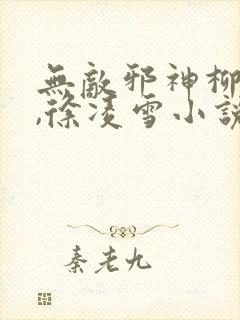 無敵邪神柳
,徐凌雪小說
秦老九